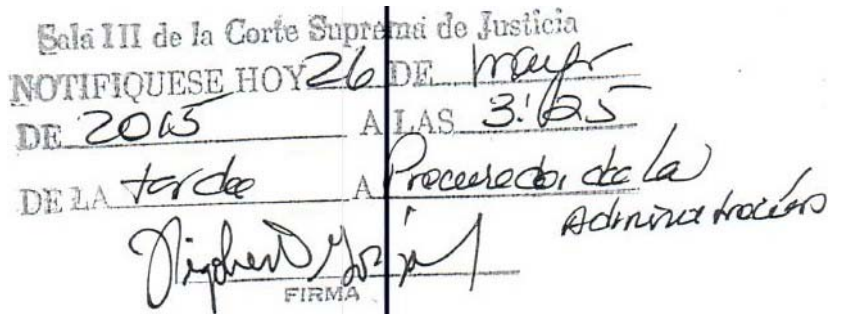 Sala III de la Corte Suprema de Justicia
NOTIFIQUESE HOY 26 DE mayo
DE 2015 A LAS 3:25
DE LA tarde A Procurador de la
Administración
FIRMA